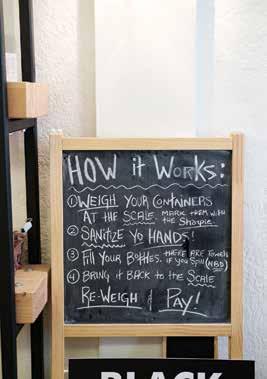 How it Works:
① Weigh Your Containers
at the Scale. Mark them with the Sharpie
② Sanitize Yo Hands!
③ Fill Your Bottles. there are towels if you spill (NBD)
④ Bring it back to the Scale
Re-Weigh & Pay!
BLACK